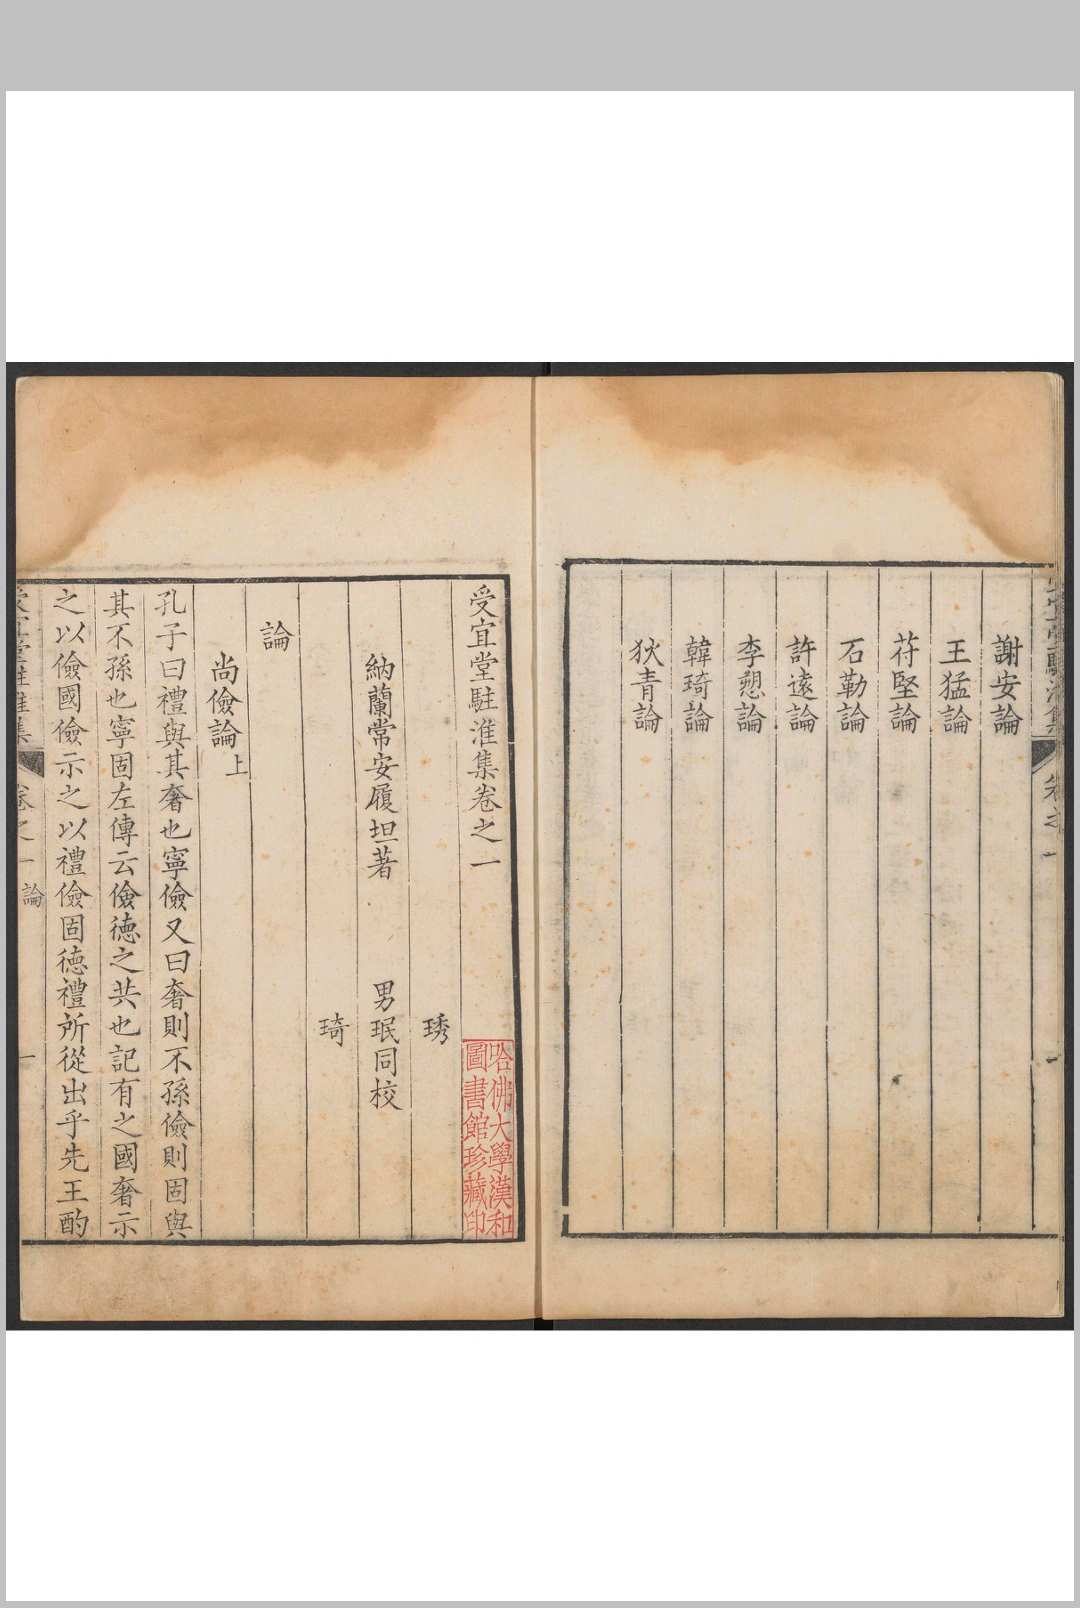 謝安論
王猛論
苻堅論
石勒論
許遠論
李愬論
韓琦論
狄青論
受宜堂駐淮集卷之一
琇
納蘭常安履坦著 男珉同校
琦
論
尚儉論上
孔子曰禮與其奢也寧儉又曰奢則不孫儉則固與
其不孫也寧固左傳云儉德之共也記有之國奢示
之以儉國儉示之以禮儉固德禮所從出乎先王酌
受宜堂駐淮集 卷之一 論 一
哈佛大學漢和
圖書館珍藏印